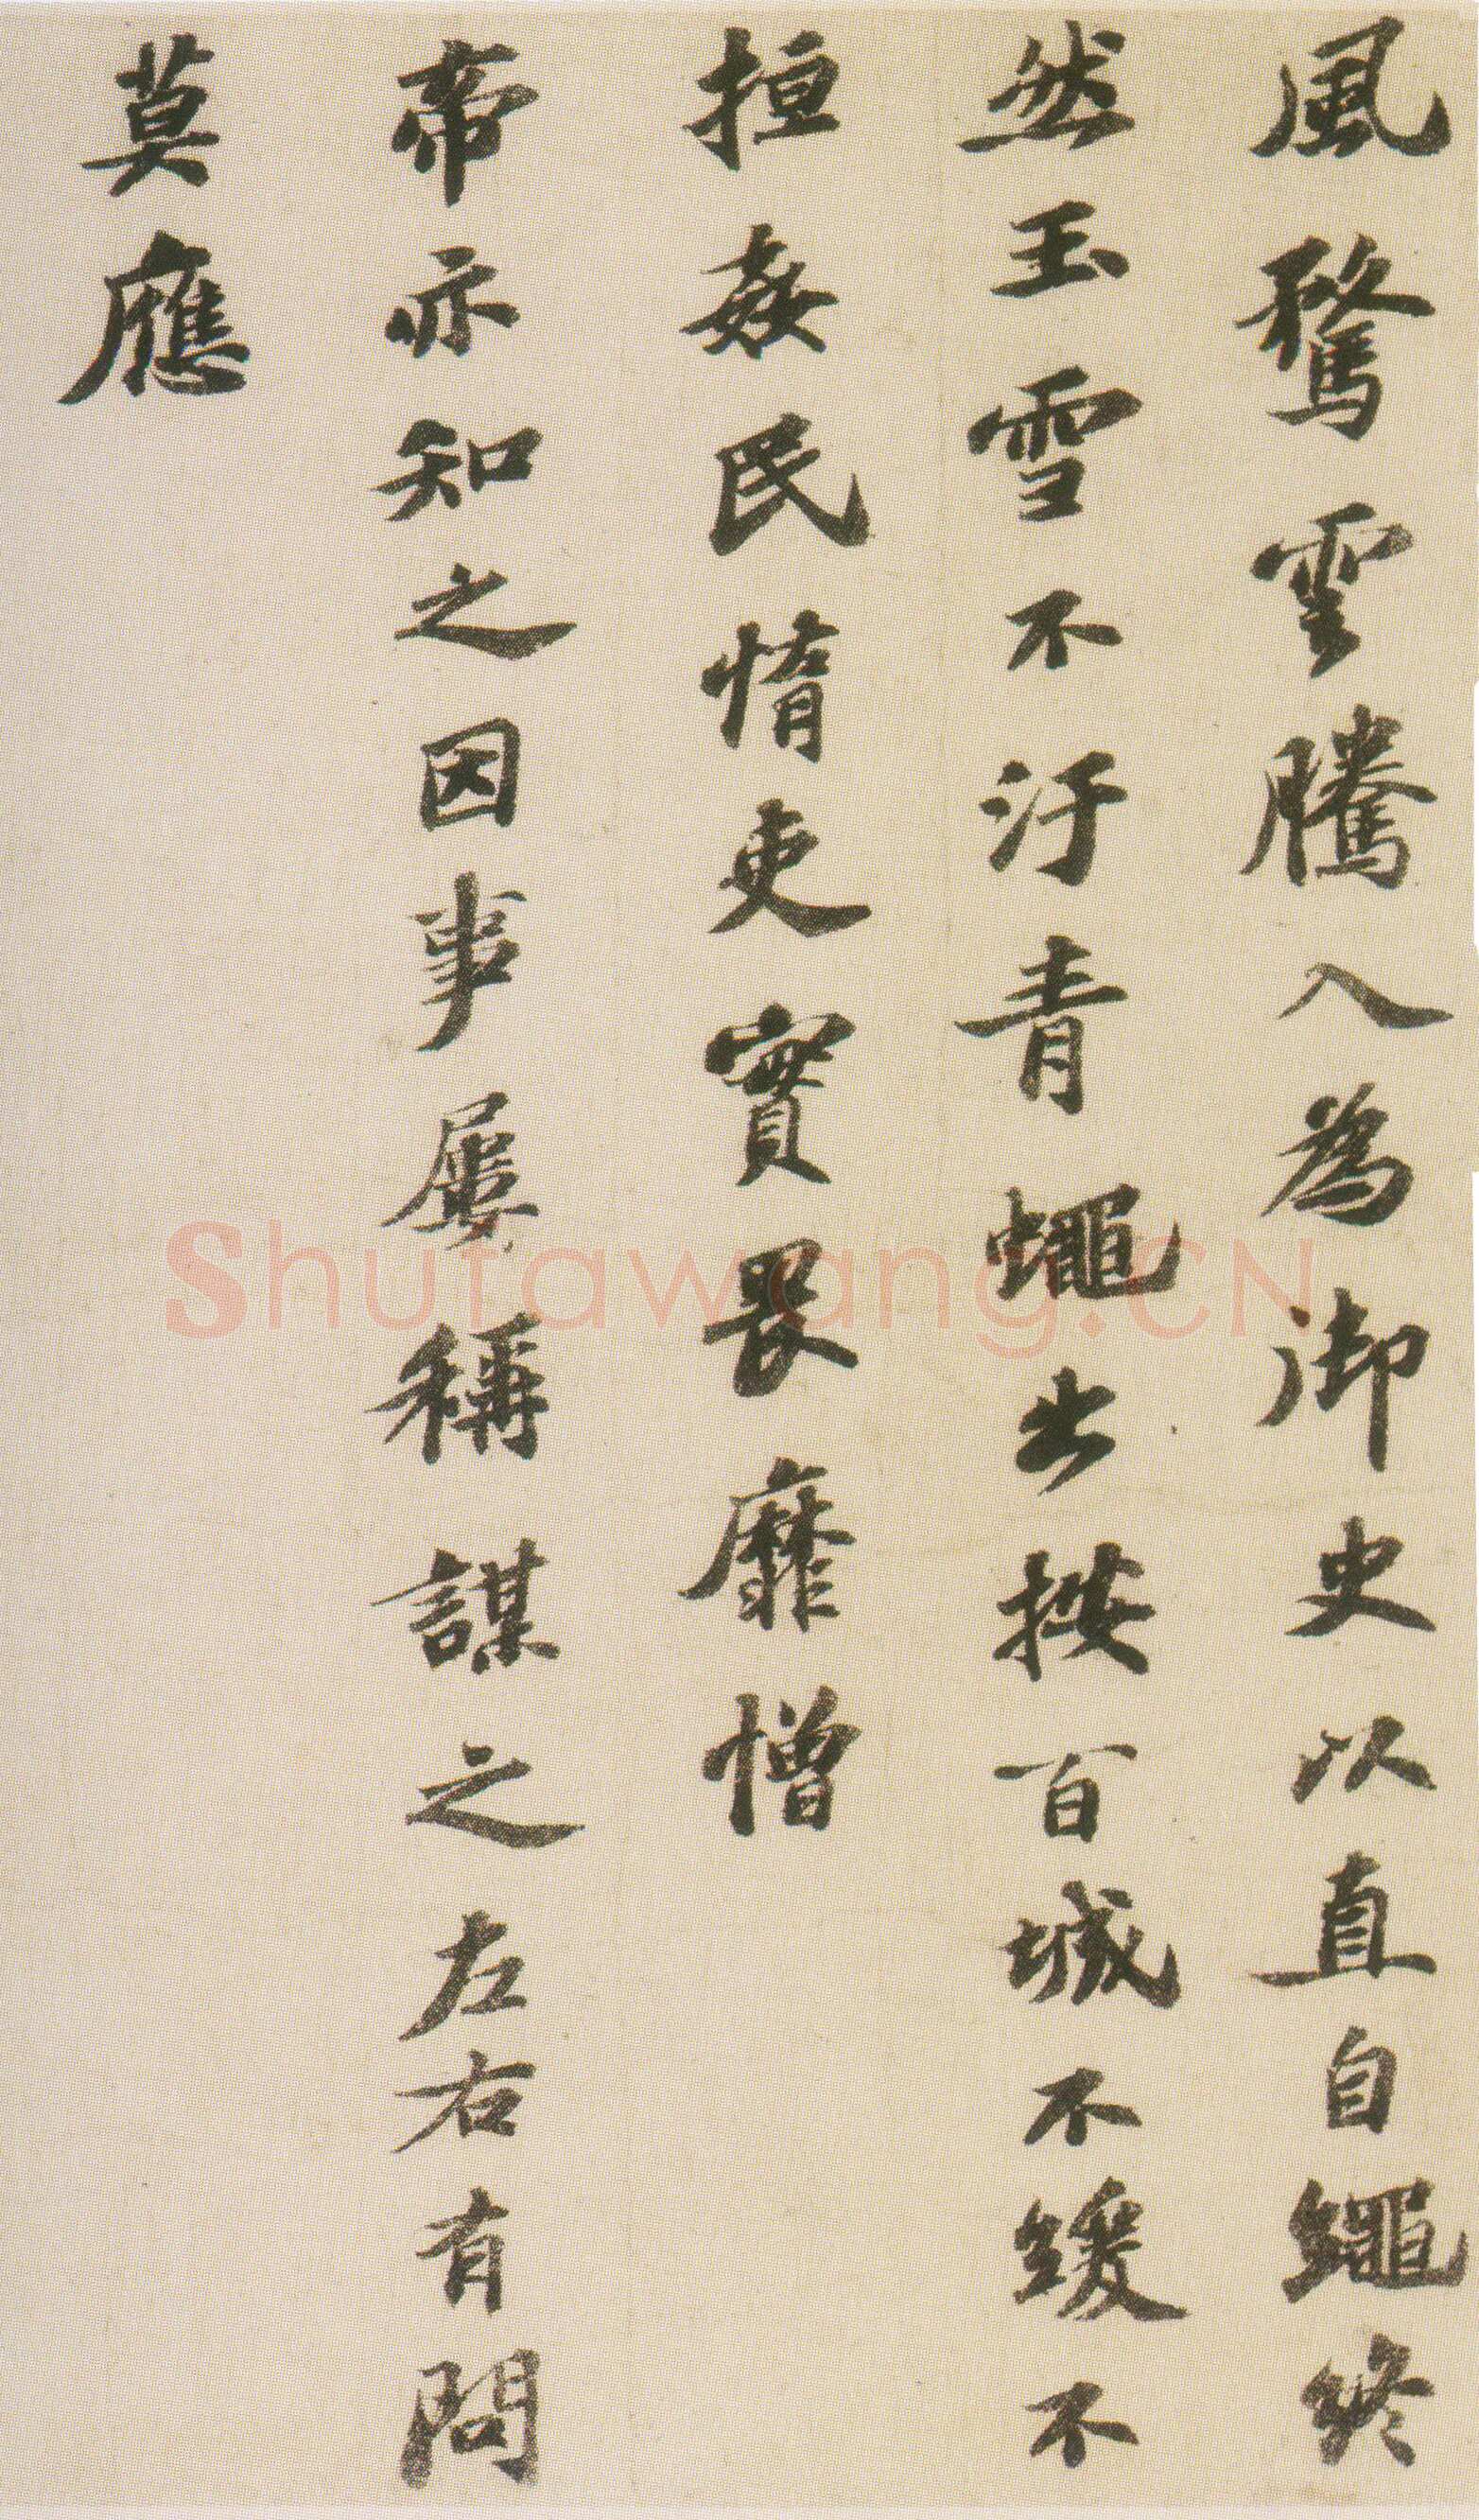 風騖雲騰入為御史以直自繩終
然玉雪不汙青蠅出按百城不緩不
搄姦民惰吏實畏靡憎
帝亦知之因事屢稱謀之左右有問
莫應
Shufawang.CN